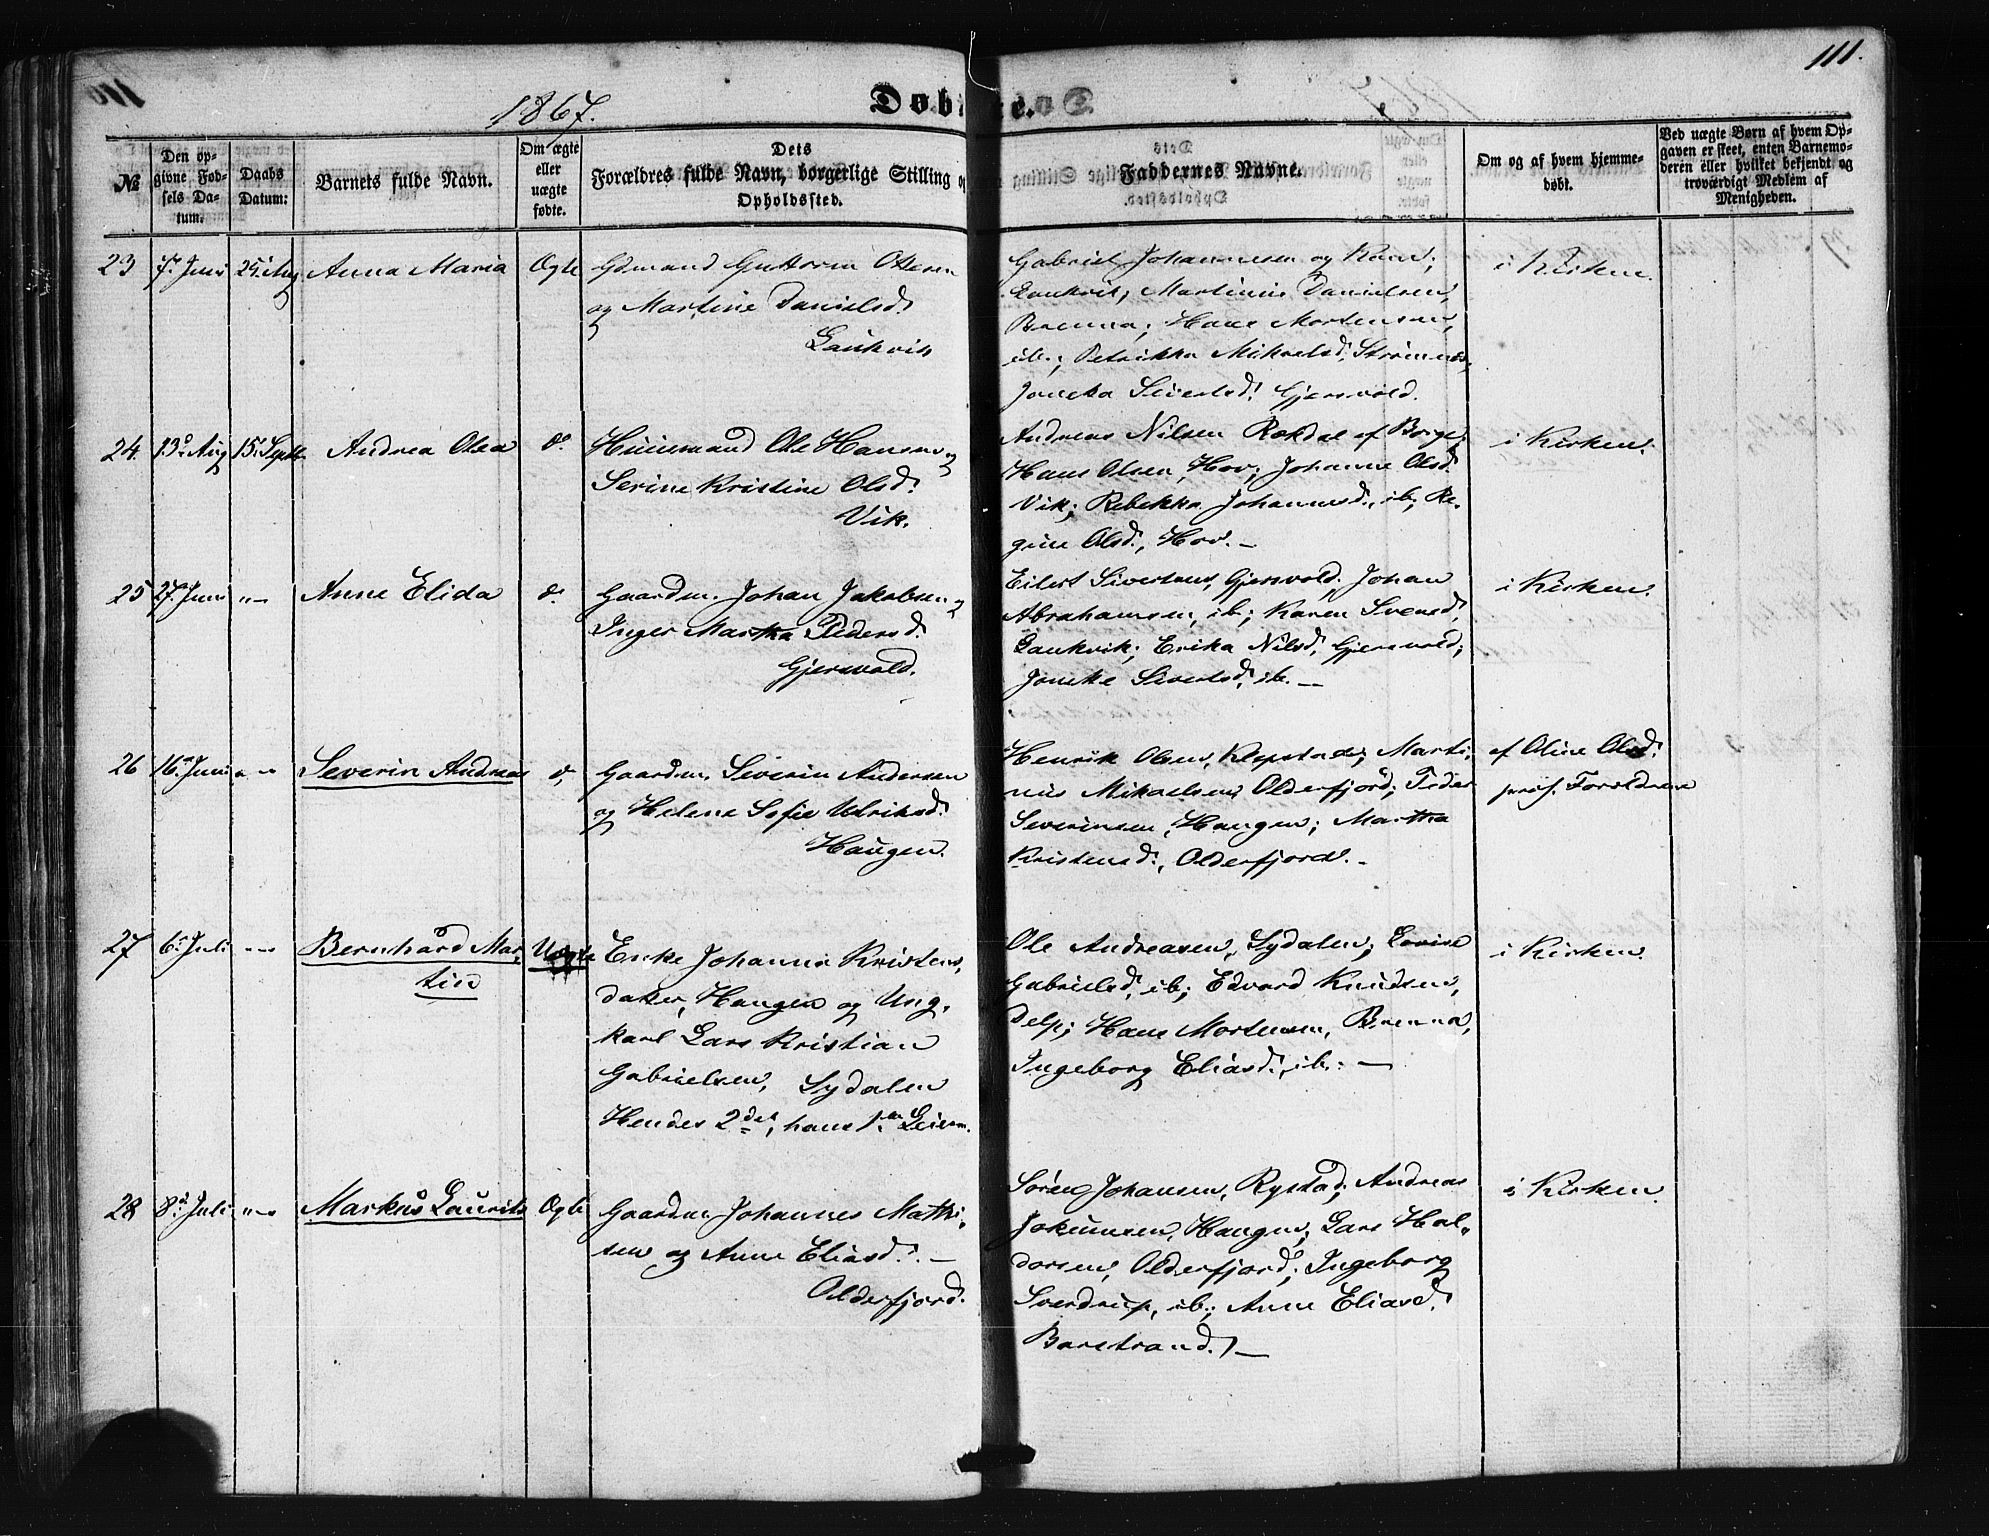 111.
1867.
Døbte.
№
Den opgivne Fødsels Datum.
Daabs Datum:
Barnets fulde Navn.
Om ægte eller uægte fødte.
Dets Forældres fulde Navn, borgerlige Stilling og Opholdssted.
Faddernes Navne.
Om og af hvem hjemmedøbt.
Ved uægte Børn af hvem Opgaven er skeet, enten Barnemoderen eller hvilket bekjendt og troværdigt Medlem af Menigheden.
23 7. Juni 25. Aug Anna Maria Ægte
Gdmand Guttorm Ottesen
og Martine Danielsd.
Laukvik
Gabriel Johannesen og Kone,
Laukvik; Martinus Danielsen,
Brenna; Hans Mortensen,
ib.; Petrikka Mikaelsd. Strømnes,
Joneka Sivertsd. Gjersvold.
i Kirken.
24. 13. Aug 15. Septb. Andrea Olea do
Huusmand Ole Hansen og
Serine Kristine Olsd.
Vik.
Andreas Nilsen Rekdal af Borge;
Hans Olsen, Hov; Johanne Olsd.
Vik; Rebekka Johannesd., ib; Re-
gine Olsd., Hov. —
i Kirken.
25 27. Juni "— Anne Elida do
Gaardm. Johan Jakobsen og
Inger Martha Pedersd.
Gjersvold.
Eilert Sivertsen, Gjersvold; Johan
Abrahamsen, ib; Karen Svensd.
Laukvik; Erika Nilsd, Gjersvold;
Joneke Sivertsd., ib. —
i Kirken.
26 16. Juni "— Severin Andreas do
Gaardm. Severin Andersen
og Helene Sofie Ulriksd.
Haugen.
Henrik Olsen, Klepstad; Marti-
nus Mikaelsen, Olderfjord; Peder
Severinsen, Haugen; Martha
Kristensd., Olderfjord. -
af Oline Olsd.
prøf. Forældrene
27 6. Juli "— Bernhard Mar-
tin
Uægte
Enke Johanna Kristens-
datter, Haugen og Ung-
karl Lars Kristian
Gabrielsen, Sydalen
Hendes 2det, hans 1ste Leierm.
Ole Andreasen, Sydalen; Lovise
Gabrielsd., ib; Edvard Knudsen,
Delp; Hans Mortensen, Brenna,
Ingeborg Eliasd., ib. —
i Kirken.
28 8. Juli "— Markus Laurits Ægte
Gaardm. Johannes Mathi-
sen og Anne Eliasd. —
Olderfjord.
Søren Johansen, Rystad; Andreas
Jokumsen, Haugen; Lars Hal-
dorsen, Olderfjord; Ingeborg
Sverdrup, ib; Anne Eliasd.
Barstrand. —
i Kirken.